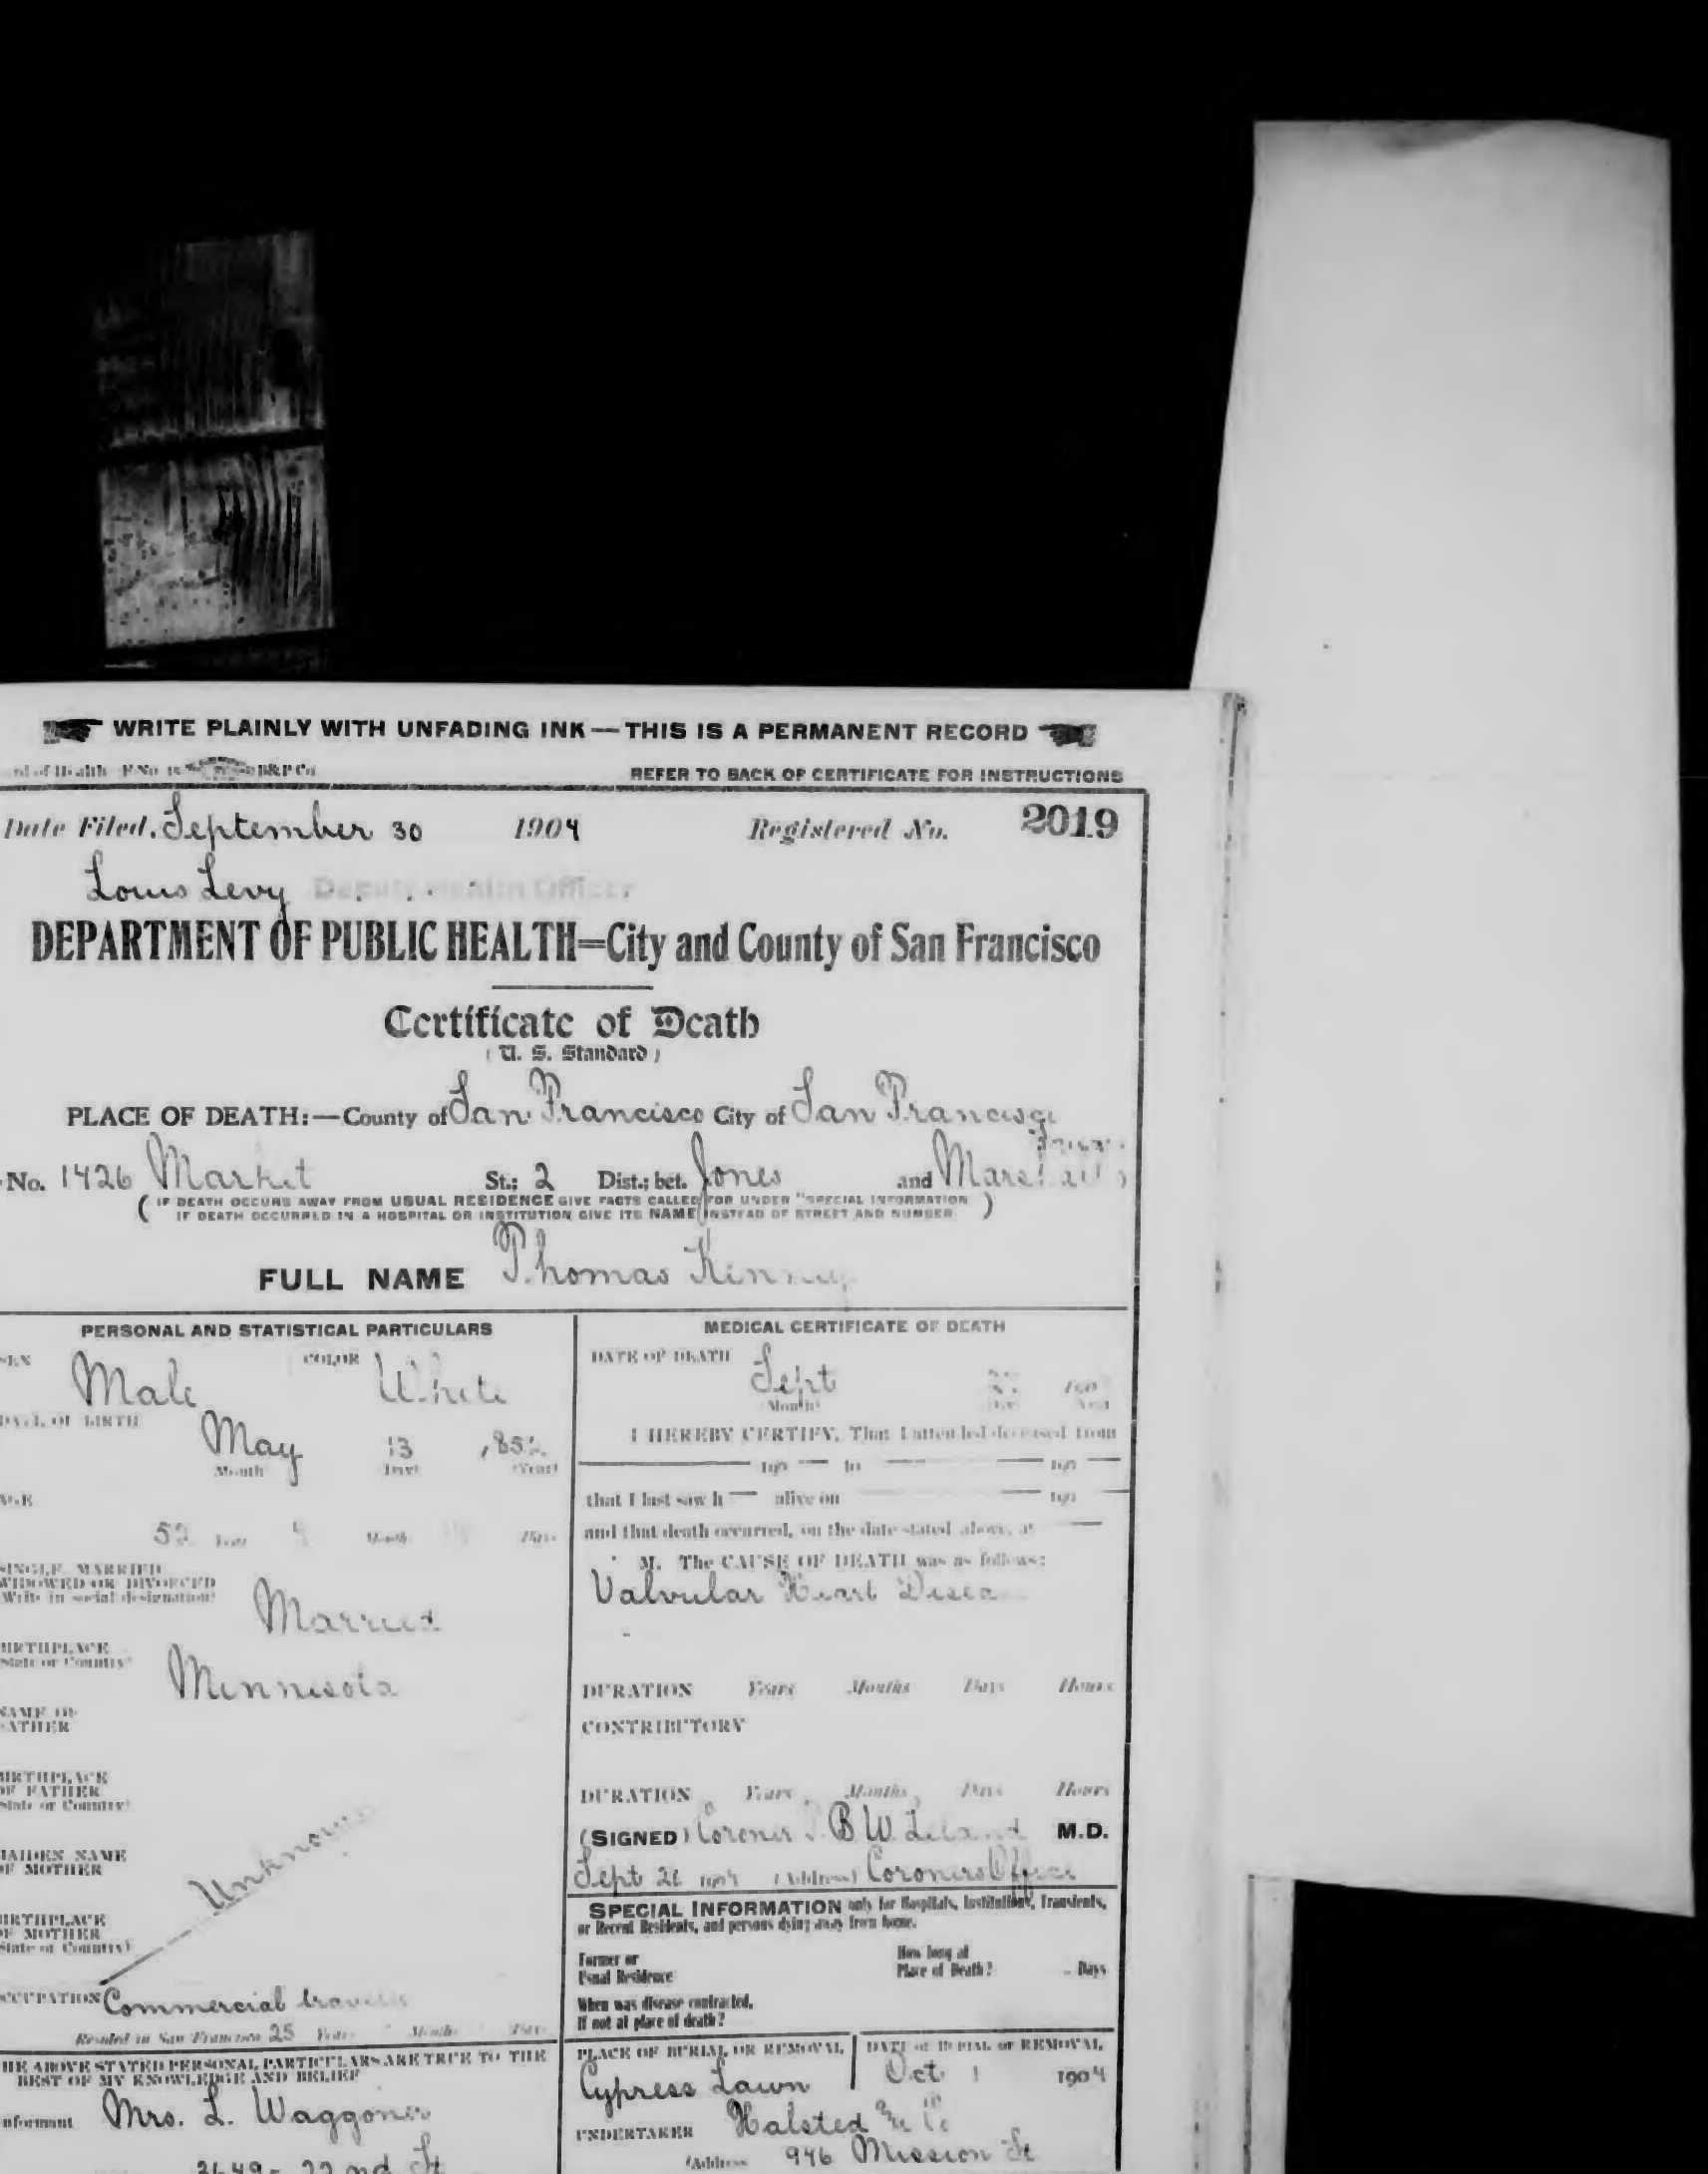 WRITE PLAINLY WITH UNFADING INK — THIS IS A PERMANENT RECORD
B&P Co
REFER TO BACK OF CERTIFICATE FOR INSTRUCTIONS
Date Filed, September 30 1904 Registered No. 2019
Louis Levy Deputy Health Officer
DEPARTMENT OF PUBLIC HEALTH=City and County of San Francisco
Certificate of Death
(U. S. Standard)
PLACE OF DEATH:—County of San Francisco City of San Francisco
No. 1426 Market St.; 2 Dist.; bet. Jones and
(IF DEATH OCCURS AWAY FROM USUAL RESIDENCE GIVE FACTS CALLED FOR UNDER "SPECIAL INFORMATION
IF DEATH OCCURRED IN A HOSPITAL OR INSTITUTION GIVE ITS NAME INSTEAD OF STREET AND NUMBER)
FULL NAME Thomas Kenny
PERSONAL AND STATISTICAL PARTICULARS
SEX Male COLOR White
DATE OF BIRTH May 13 1852
Month Day (Year)
AGE
52 Years 4 Months Days
SINGLE, MARRIED
WIDOWED OR DIVORCED
Write in social designation
Married
BIRTHPLACE
State or Country
Minnesota
NAME OF
FATHER
BIRTHPLACE
OF FATHER
State or Country
MAIDEN NAME
OF MOTHER
Unknown
BIRTHPLACE
OF MOTHER
State or Country)
OCCUPATION Commercial
Resided in San Francisco 25 Years Months Days
THE ABOVE STATED PERSONAL PARTICULARS ARE TRUE TO THE
BEST OF MY KNOWLEDGE AND BELIEF
Informant Mrs. L. Waggoner
3649 - 22nd St
MEDICAL CERTIFICATE OF DEATH
DATE OF DEATH Sept
Month Day Year
I HEREBY CERTIFY, That I attended deceased from
190 — to — 190 —
that I last saw h — alive on — 190 —
and that death occurred, on the date stated above, at —
M. The CAUSE OF DEATH was as follows:
Valvular Heart Disease
DURATION Years Months Days Hours
CONTRIBUTORY
DURATION Years Months Days Hours
(SIGNED) Coroner B W Leland M.D.
Sept 1904 (Address) Coroners Office
SPECIAL INFORMATION only for Hospitals, Institutions, Transients,
or Recent Residents, and persons dying away from home.
Former or
Usual Residence
How long at
Place of Death? Days
When was disease contracted,
If not at place of death?
PLACE OF BURIAL OR REMOVAL
Cypress Lawn
DATE of BURIAL or REMOVAL
Oct 1 1904
UNDERTAKER Halsted & Co
(Address 946 Mission St